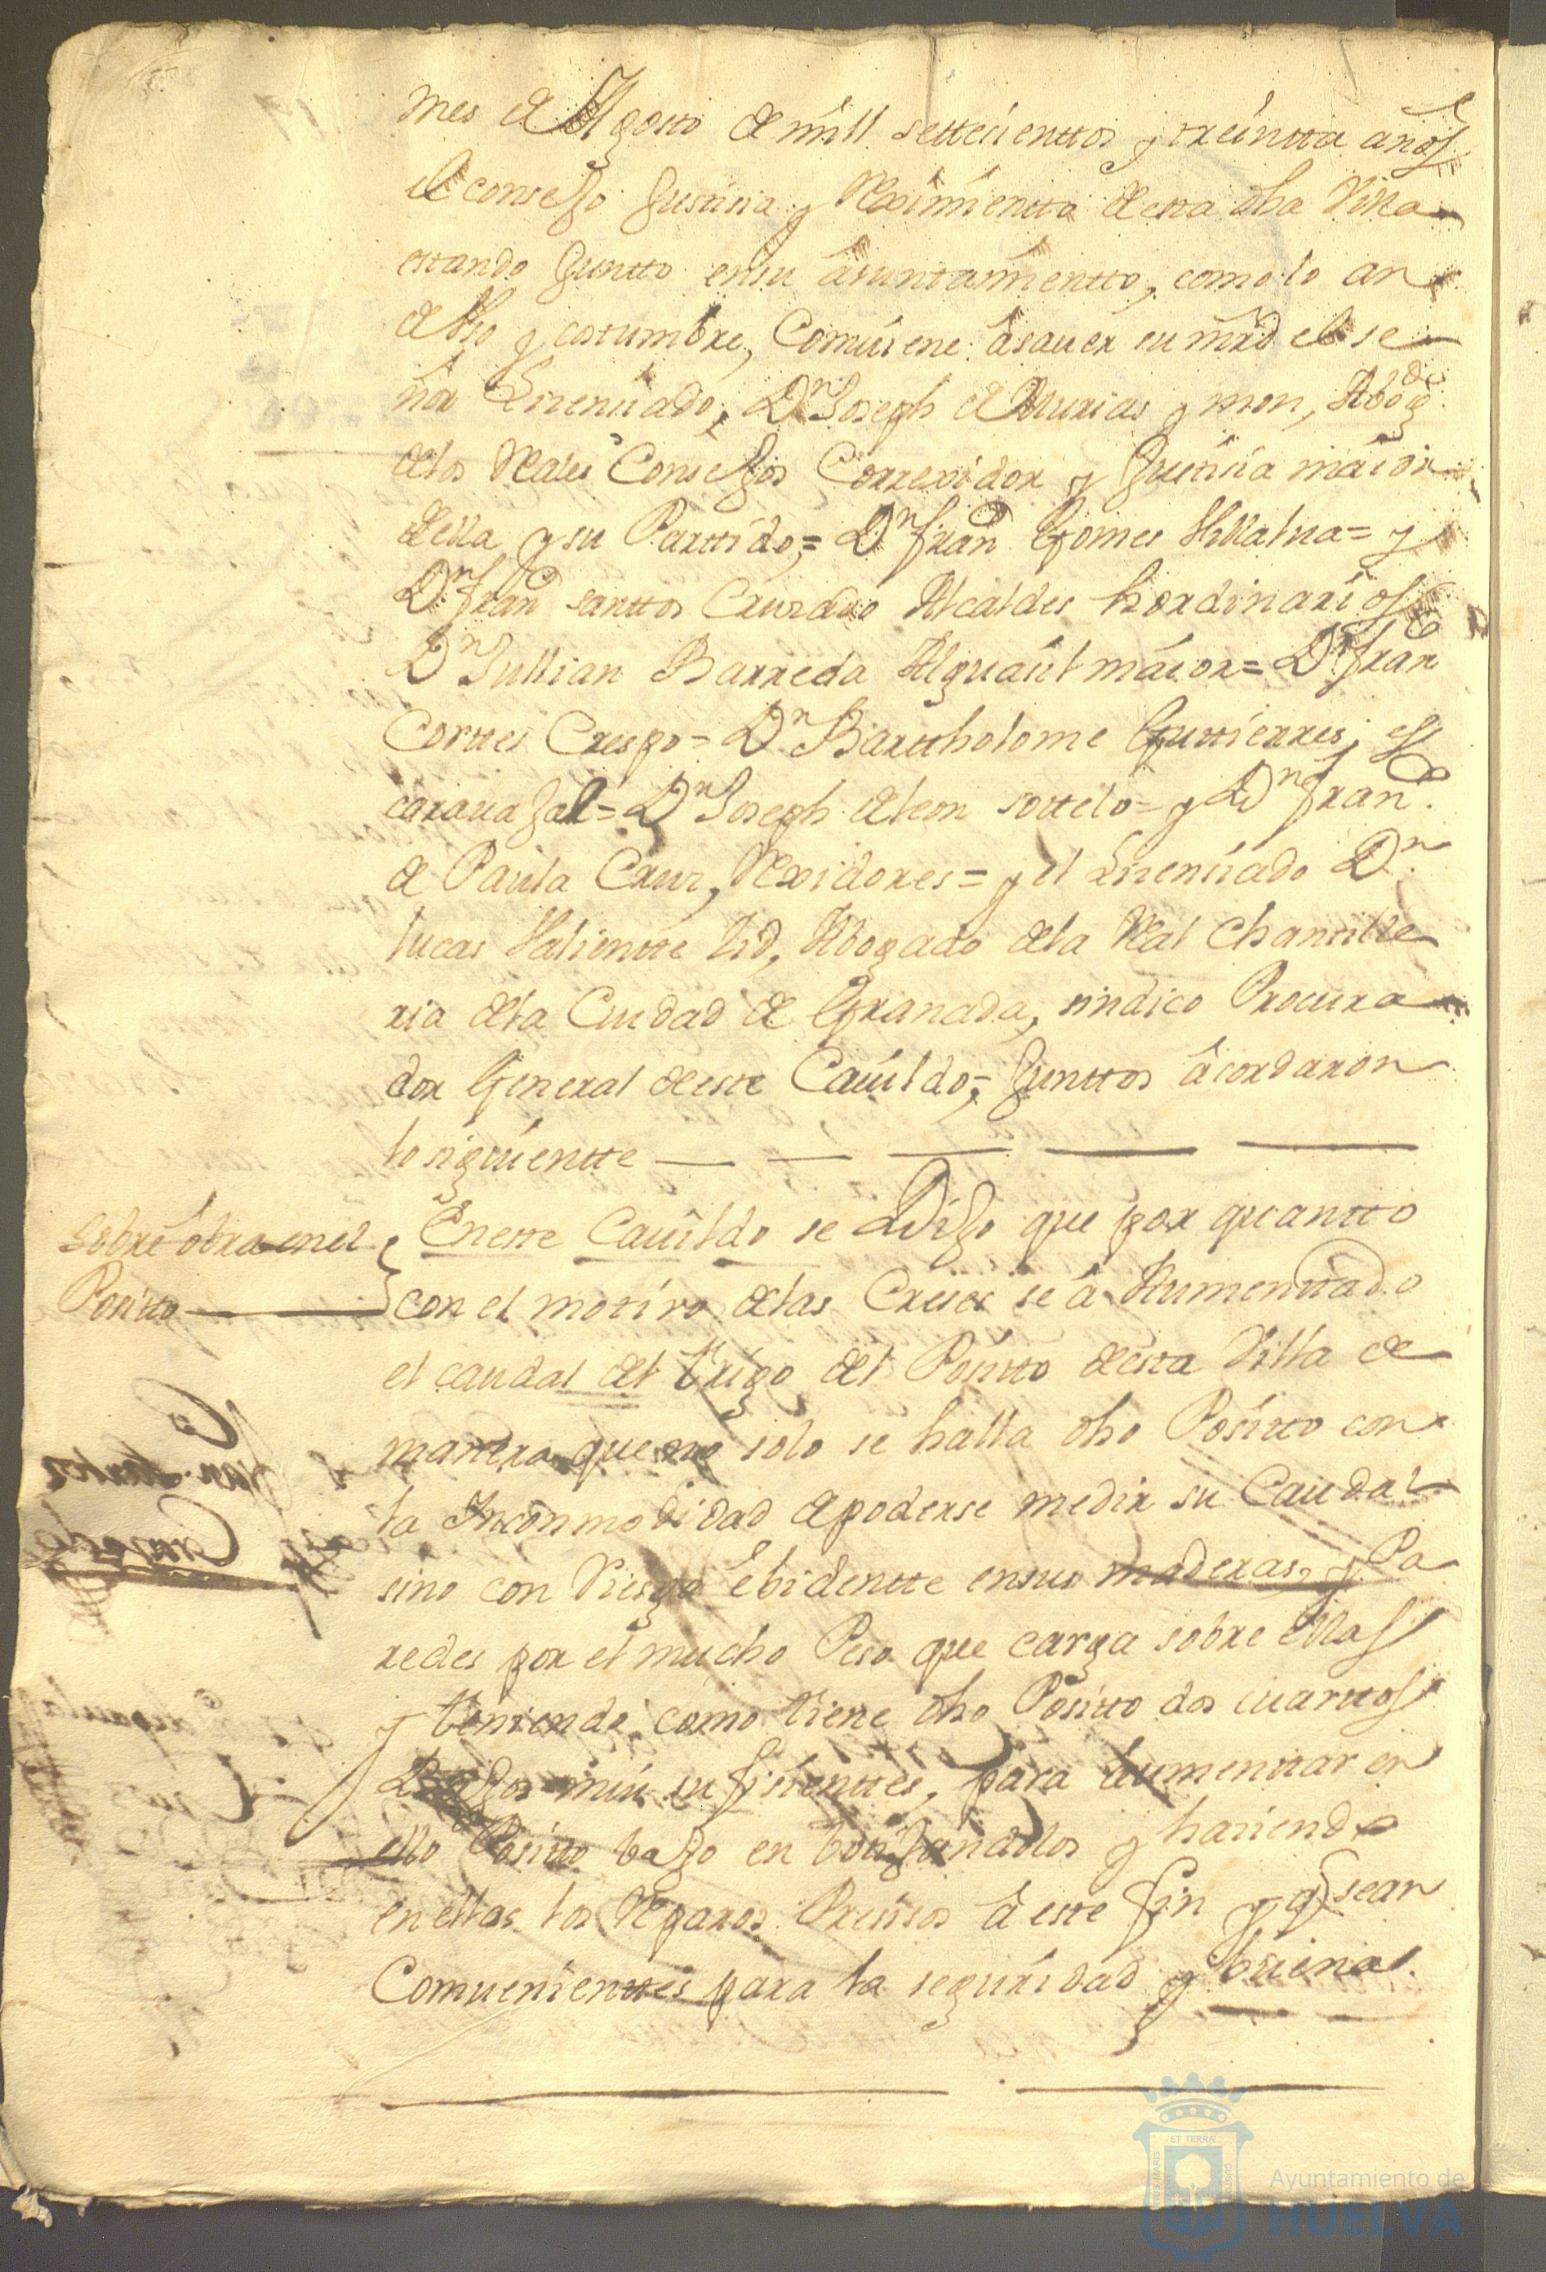 mes de Agosto de mill settecienttos y treintta años
el consejo Justicia y Reximientto desta dha Villa
estando Juntto en su aiuntamientto, como lo an
de Vso y costumbre, Combiene a sauer su mrd el se
ñor Lizenciado, Dn Joseph de Murias y mon, Abogdo
de los Rales Consejos Correxidor y Justicia maior
della y su Parttido,= Dn Franco Gomes Villalua= y
Dn Franco santtos Cruzado Alcaldes hordinarios
Dn Jullian Barreda Alguacil maior= Dn Franco
Corttes Crespo= Dn Barttholome Guttierres,
carauajal= Dn Joseph de leon sottelo= y Dn Franco
de Paula Cruz, Rexidores= y el Lizenciado Dn
lucas Valientte Cid, Abogado de la Ral Chanzille
ria de la Ciudad de Granada, sindico Procura
dor General deste Cauildo,= Junttos acordaron
lo siguientte
Sobre obra en el
Positto
En este Cauildo se Dijo que por quantto
con el motivo de las Creses se a Aumenttado
el caudal del trigo del Positto desta Villa de
manera que no solo se halla dho Positto con
la Incommodidad de poderse medir su Caudal
sino con Riesgo Ebidentte en sus maderas, y Pa
redes por el mucho Peso que carga sobre ellas
y teniendo como tiene dho Positto dos cuarttos
Bajos mui sufisienttes, para aumenttar en
ello Positto bajo en y haziendo
en ellas los Reparos Presisos a este fin y q sean
Comuenienttes para la seguridad y buena
Ayuntamiento de
HUELVA